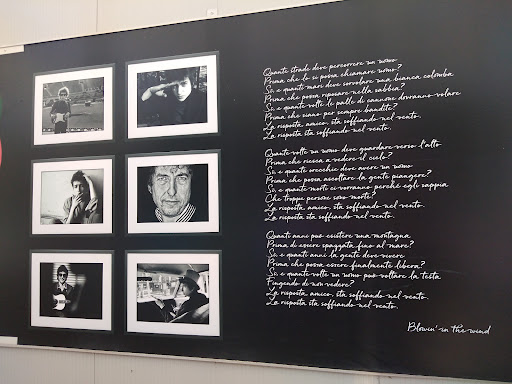 Quante strade deve percorrere un uomo
Prima che lo si possa chiamare uomo?
Sì, e quanti mari deve sorvolare una bianca colomba
Prima che possa riposare nella sabbia?
Sì, e quante volte le palle di cannone dovranno volare
Prima che siano per sempre bandite?
La risposta, amico, sta soffiando nel vento.
La risposta sta soffiando nel vento.
Quante volte un uomo deve guardare verso l'alto
Prima che riesca a vedere il cielo?
Sì, e quante orecchie deve avere un uomo
Prima che possa ascoltare la gente piangere?
Sì, e quante morti ci vorranno perché egli sappia
Che troppe persone sono morte?
La risposta, amico, sta soffiando nel vento.
La risposta sta soffiando nel vento.
Quanti anni può esistere una montagna
Prima di essere spazzata fino al mare?
Sì, e quanti anni la gente deve vivere
Prima che possa essere finalmente libera?
Sì, e quante volte un uomo può voltare la testa
Fingendo di non vedere?
La risposta, amico, sta soffiando nel vento.
La risposta sta soffiando nel vento.
Blowin' in the wind